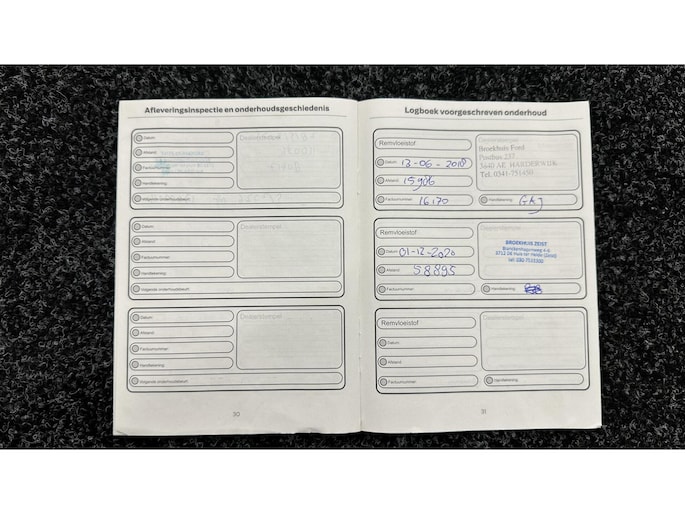 Afleveringsinspectie en onderhoudsgeschiedenis
Datum
Dealerstempel
Afstand
Factuurnummer
Handtekening
Volgende onderhoudsbeurt
Datum
Dealerstempel
Afstand
Factuurnummer
Handtekening
Volgende onderhoudsbeurt
Datum
Dealerstempel
Afstand
Factuurnummer
Handtekening
Volgende onderhoudsbeurt
30
Logboek voorgeschreven onderhoud
Remvloeistof
Dealerstempel
Broekhuis Ford
Postbus 257
3840 AE HARDERWIJK
Tel. 0341-751450
Datum 13-06-2018
Afstand 15906
Factuurnummer 16170
Handtekening
Remvloeistof
BROEKHUIS ZEIST
3712 DE Huis ter Heide (Zeist)
Datum 01-12-2020
Afstand 58895
Factuurnummer
Handtekening
Remvloeistof
Dealerstempel
Datum
Afstand
Factuurnummer
Handtekening
31